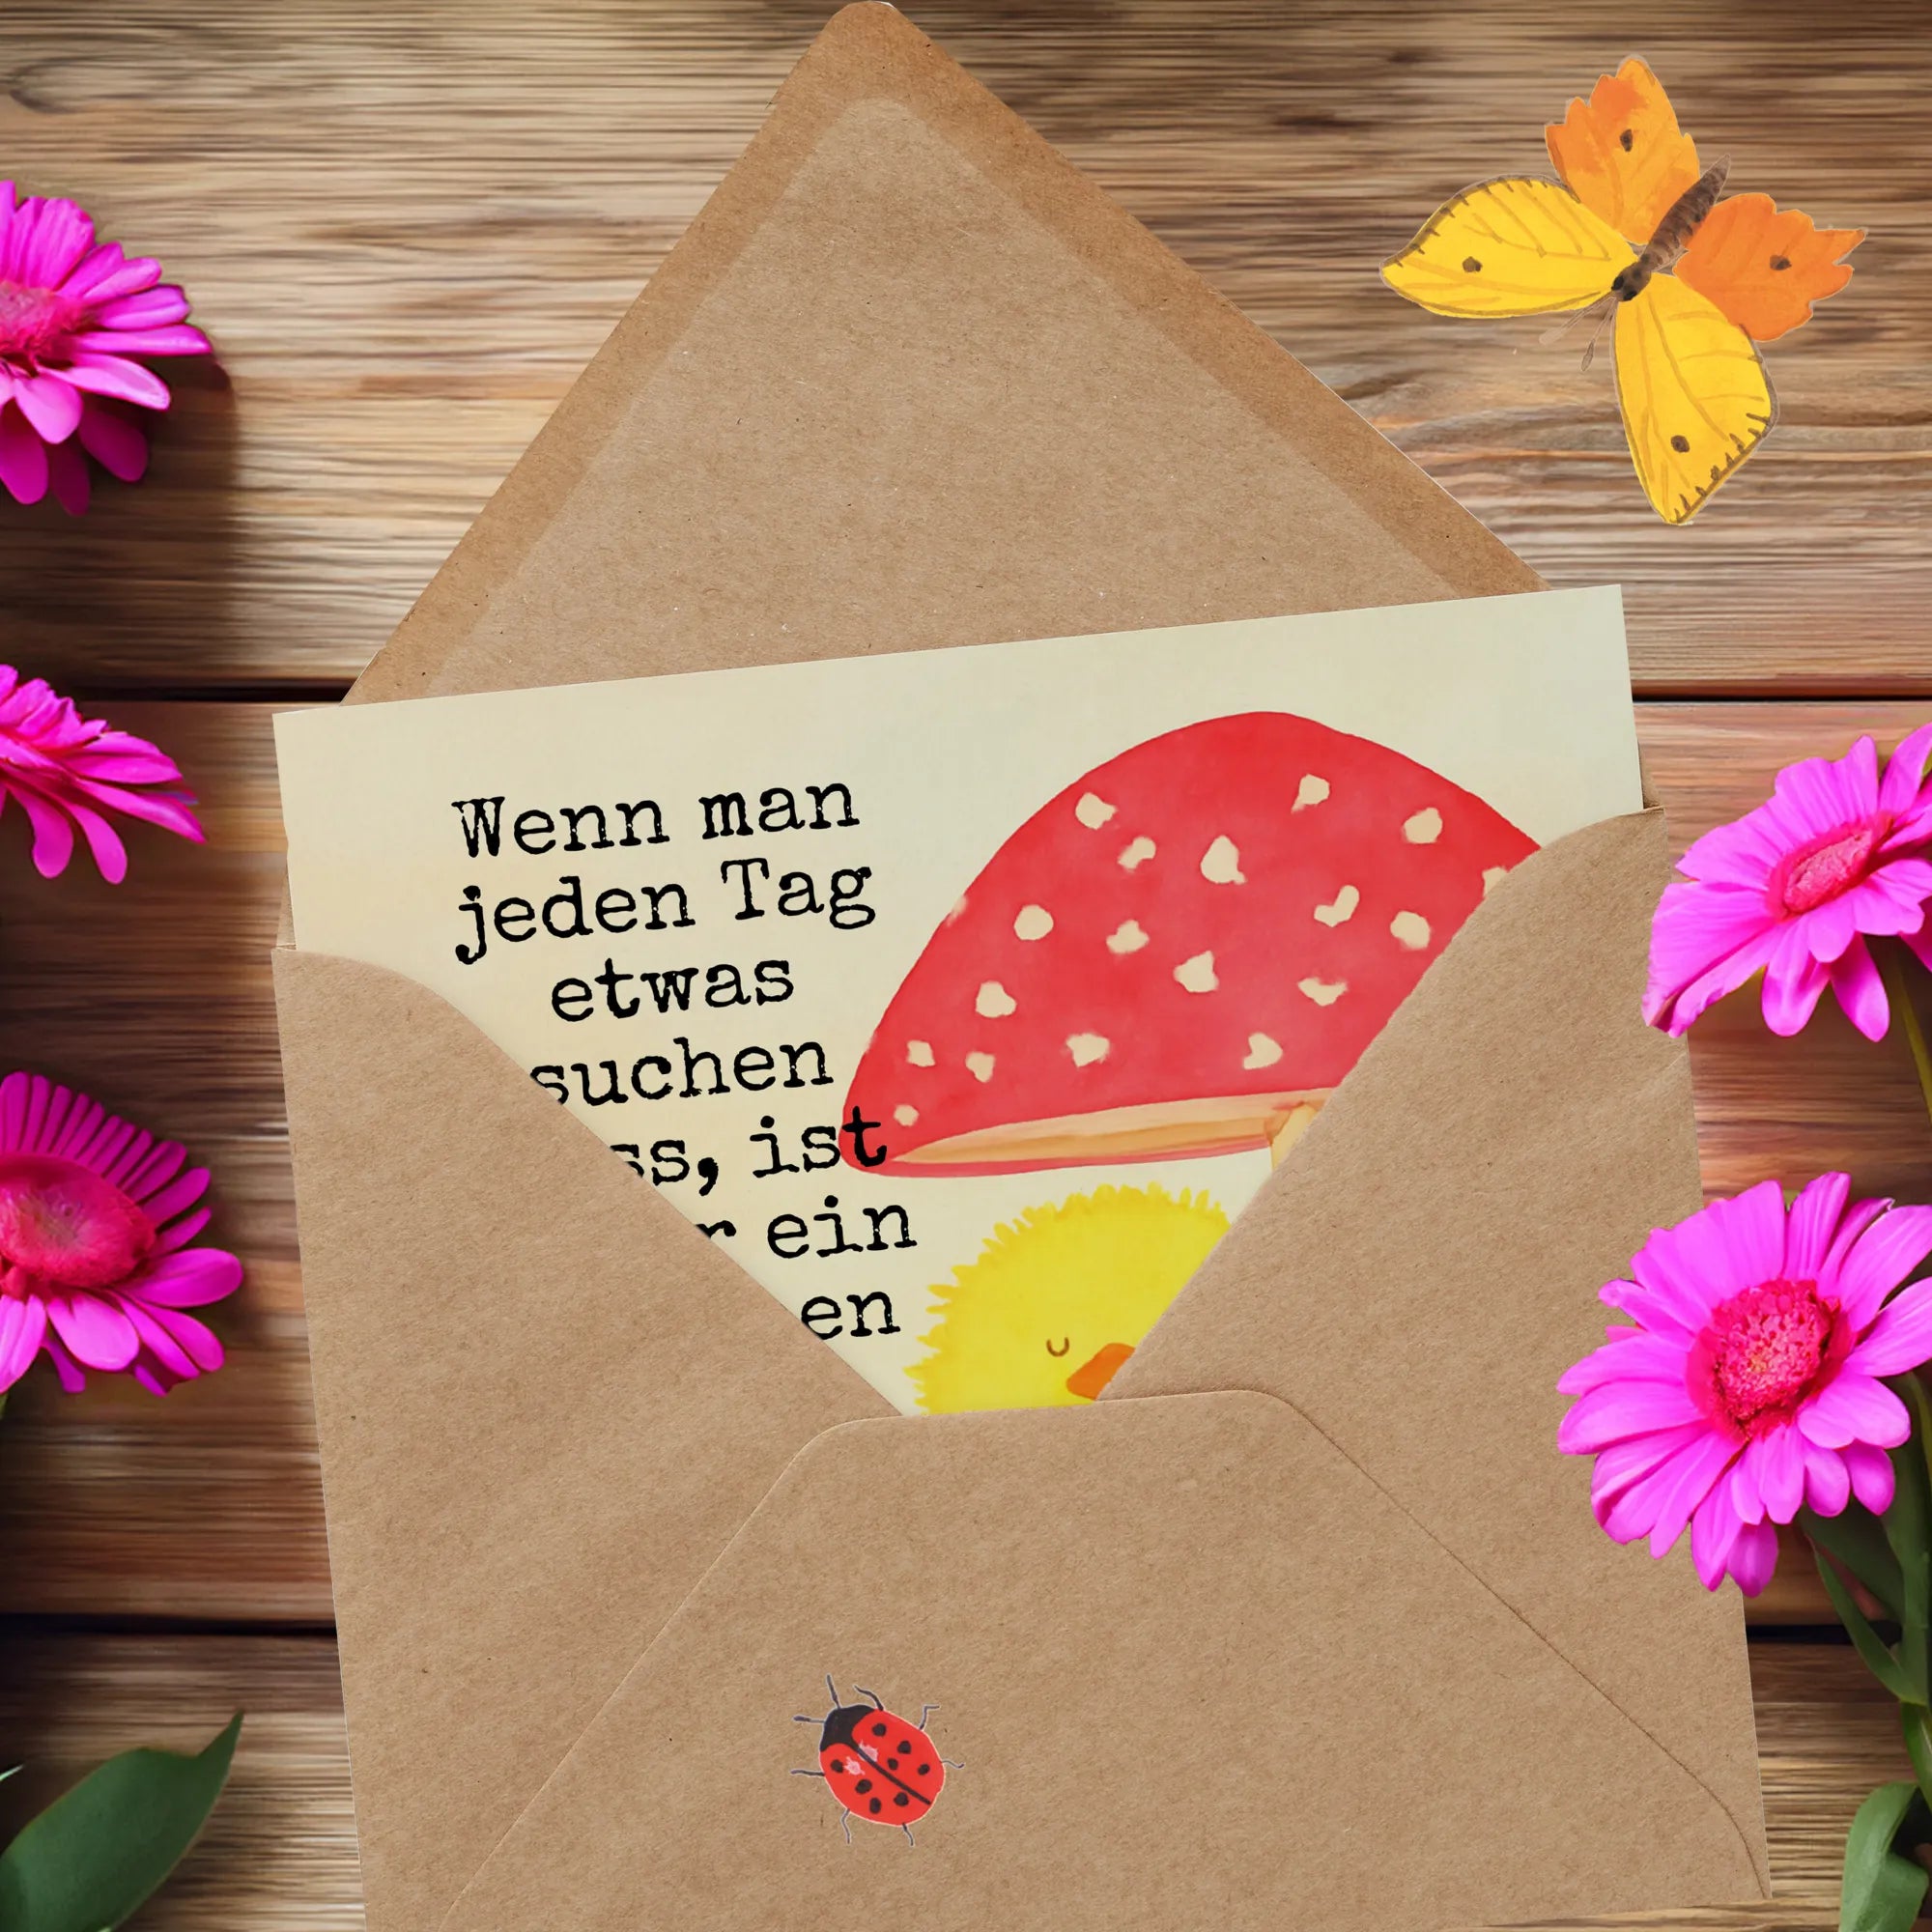 Wenn man
jeden Tag
etwas
suchen
ist
ein